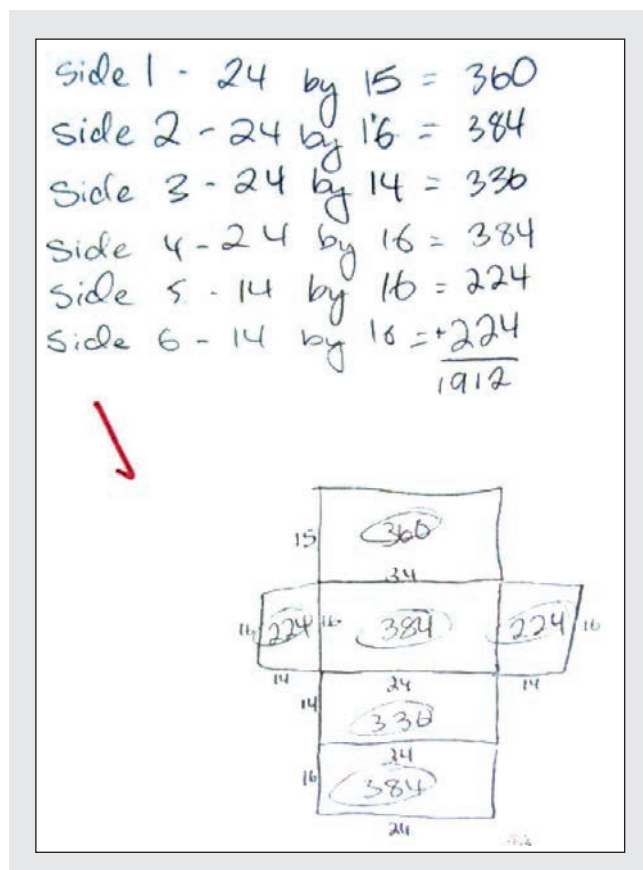 Side 1 - 24 by 15 = 360
Side 2 - 24 by 16 = 384
Side 3 - 24 by 14 = 336
Side 4 - 24 by 16 = 384
Side 5 - 14 by 16 = 224
Side 6 - 14 by 16 = +224
1912
15 360
24
16 224 16 384 224 16
14 24 14
14 336
24
16 384
24